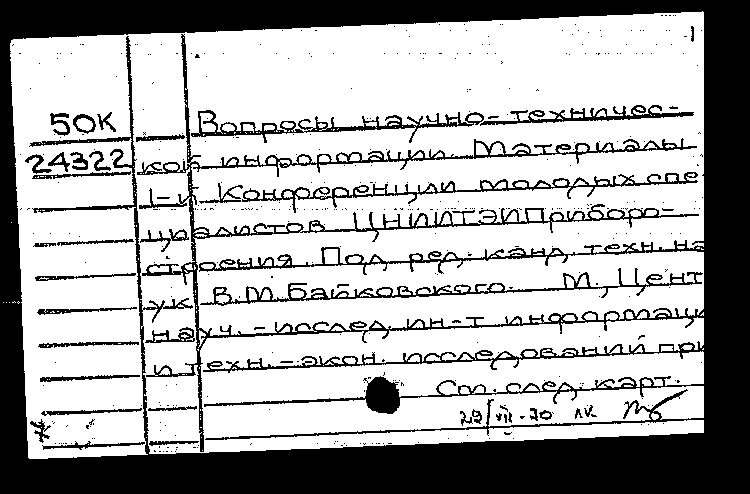 1
50К Вопросы научно-техничес-
24322 кой информации. Материалы
I-й Конференции молодых спе-
циалистов ЦНИИТЭИПриборо-
строения. Под ред. канд. техн. на
ук В.М.Байковского. М., Цент
науч.-исслед. ин-т информаци
и техн.-экон. исследований при
См. след. карт.
29/VII-70 ЛК